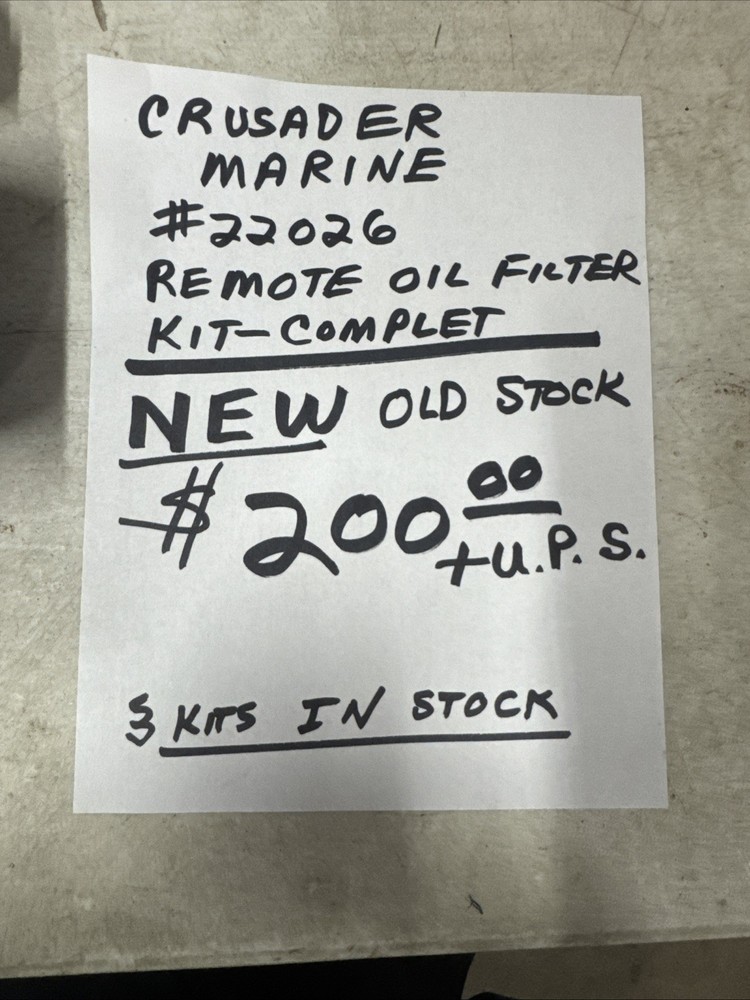 CRUSADER
MARINE
#22026
REMOTE OIL FILTER
KIT-COMPLET
NEW OLD STOCK
$200.00
+U.P.S.
KITS IN STOCK